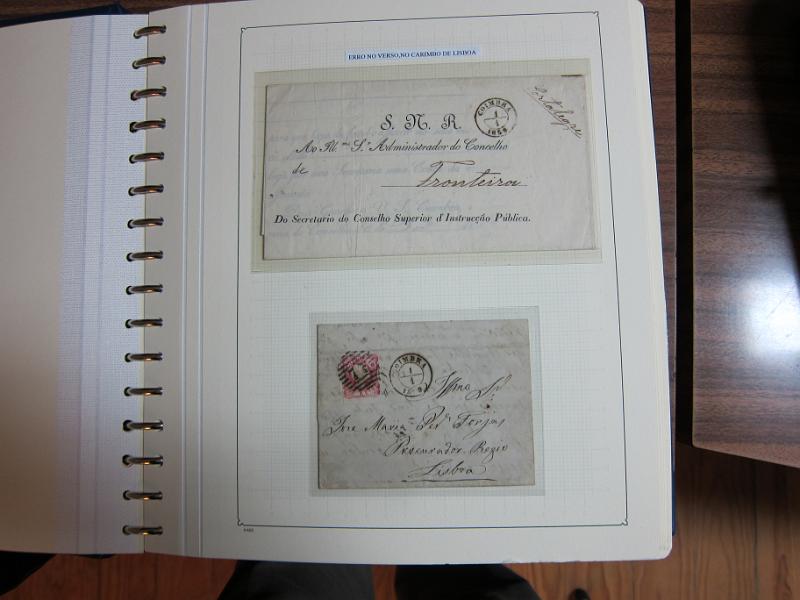 ERRO NO VERSO, NO CARIMBO DE LISBOA
COIMBRA
1
1
Portalegre
S. N. R.
Ao Ill.mo S.r Administrador do Concelho
de Fronteira
Do Secretario do Conselho Superior d'Instrucção Pública.
COIMBRA
1
1
Illmo Sr
Jose Maria Per.a Forjas
Procurador Regio
Lisboa